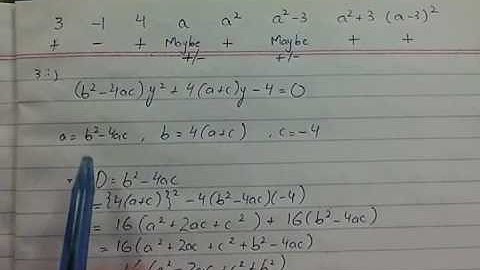 3 -1 4 a a² a²-3 a²+3 (a-3)²
+ - + Maybe + Maybe + +
+/- +/-
3ii)
(b²-4ac)y²+4(a+c)y-4=0
a=b²-4ac, b=4(a+c), c=-4
D=b²-4ac
={4(a+c)}²-4(b²-4ac)(-4)
=16(a²+2ac+c²)+16(b²-4ac)
=16(a²+2ac+c²+b²-4ac)
=16(a²-2ac+c²+b²)